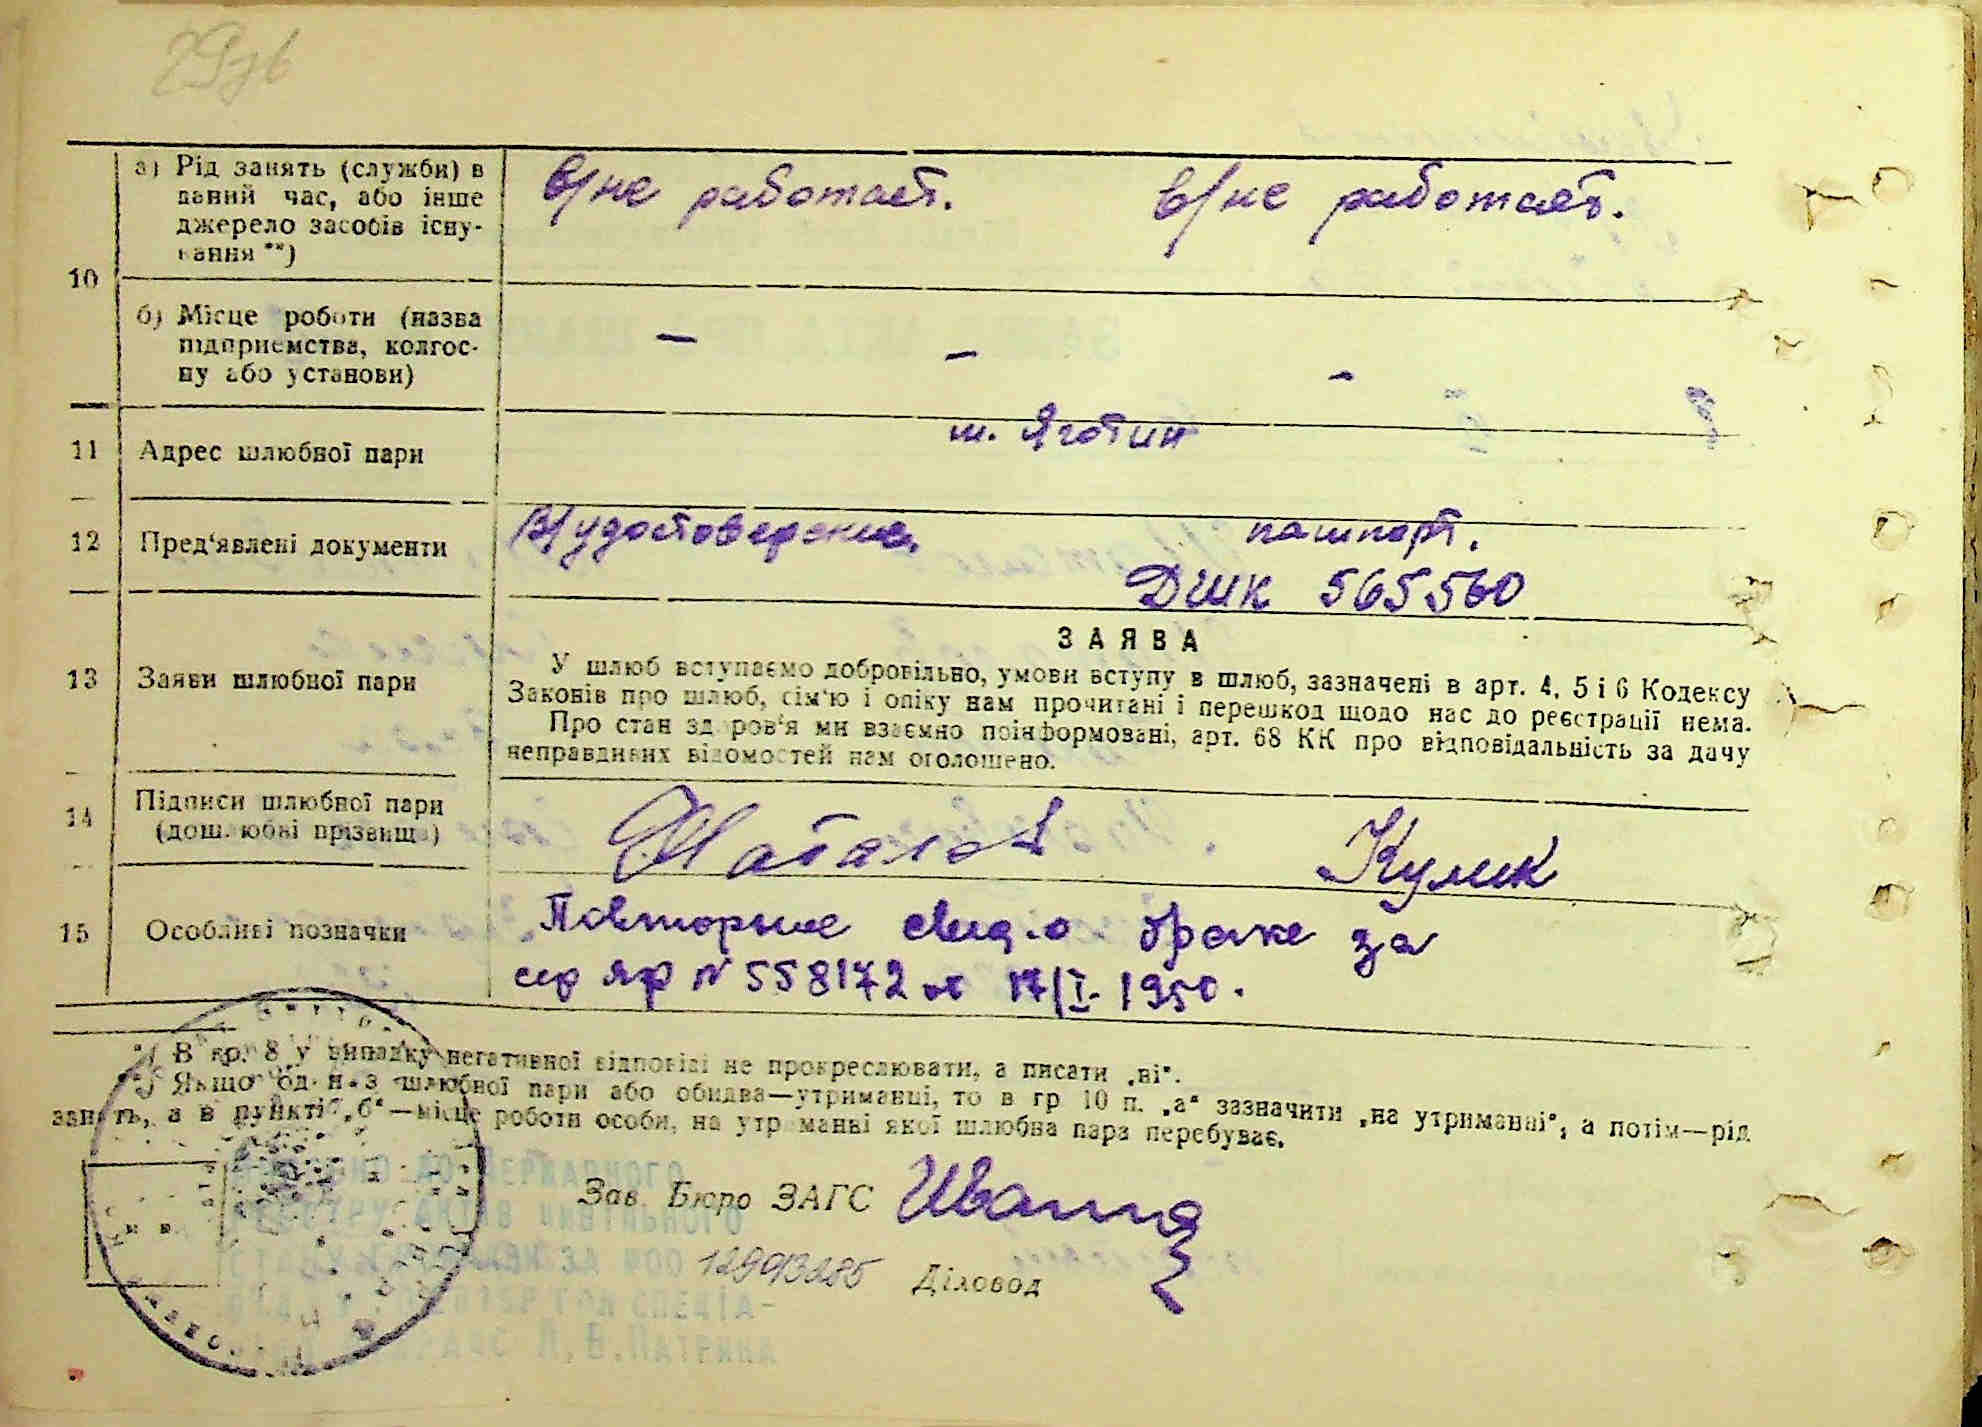 29зв
а) Рід занять (служби) в
даний час, або інше
джерело засобів існу-
вання **)
в/не работает.
в/не работает.
10
б) Місце роботи (назва
підприємства, колгос-
пу або установи)
–
–
–
11
Адрес шлюбної пари
м. Яготин
12
Пред'явлені документи
в/удостоверение.
паспорт.
565560
13
Заяви шлюбної пари
ЗАЯВА
У шлюб вступаємо добровільно, умови вступу в шлюб, зазначені в арт. 4, 5 і 6 Кодексу
Законів про шлюб, сім'ю і опіку нам прочитані і перешкод щодо нас до реєстрації нема.
Про стан здоров'я ми взаємно поінформовані, арт. 68 КК про відповідальність за дачу
неправдивих відомостей нам оголошено.
14
Підписи шлюбної пари
(дошлюбні прізвища)
Кулик
15
Особливі позначки
Повторные свид. о браке за
сер ЯФ N 558172 от 17/I- 1950.
*) В гр. 8 у випадку негативної відповіді не прокреслювати, а писати „ні".
**) Якщо один з шлюбної пари або обидва—утриманці, то в гр 10 п. „а" зазначити „на утриманні", а потім—рід
занять, а в пункті „б"—місце роботи особи, на утриманні якої шлюбна пара перебуває.
ДО ДЕРЖАВНОГО
РЕЄСТРУ АКТІВ ЦИВІЛЬНОГО
ЗА №00
12993285
Л.В.ПАТРИНА
Зав. Бюро ЗАГС
Діловод